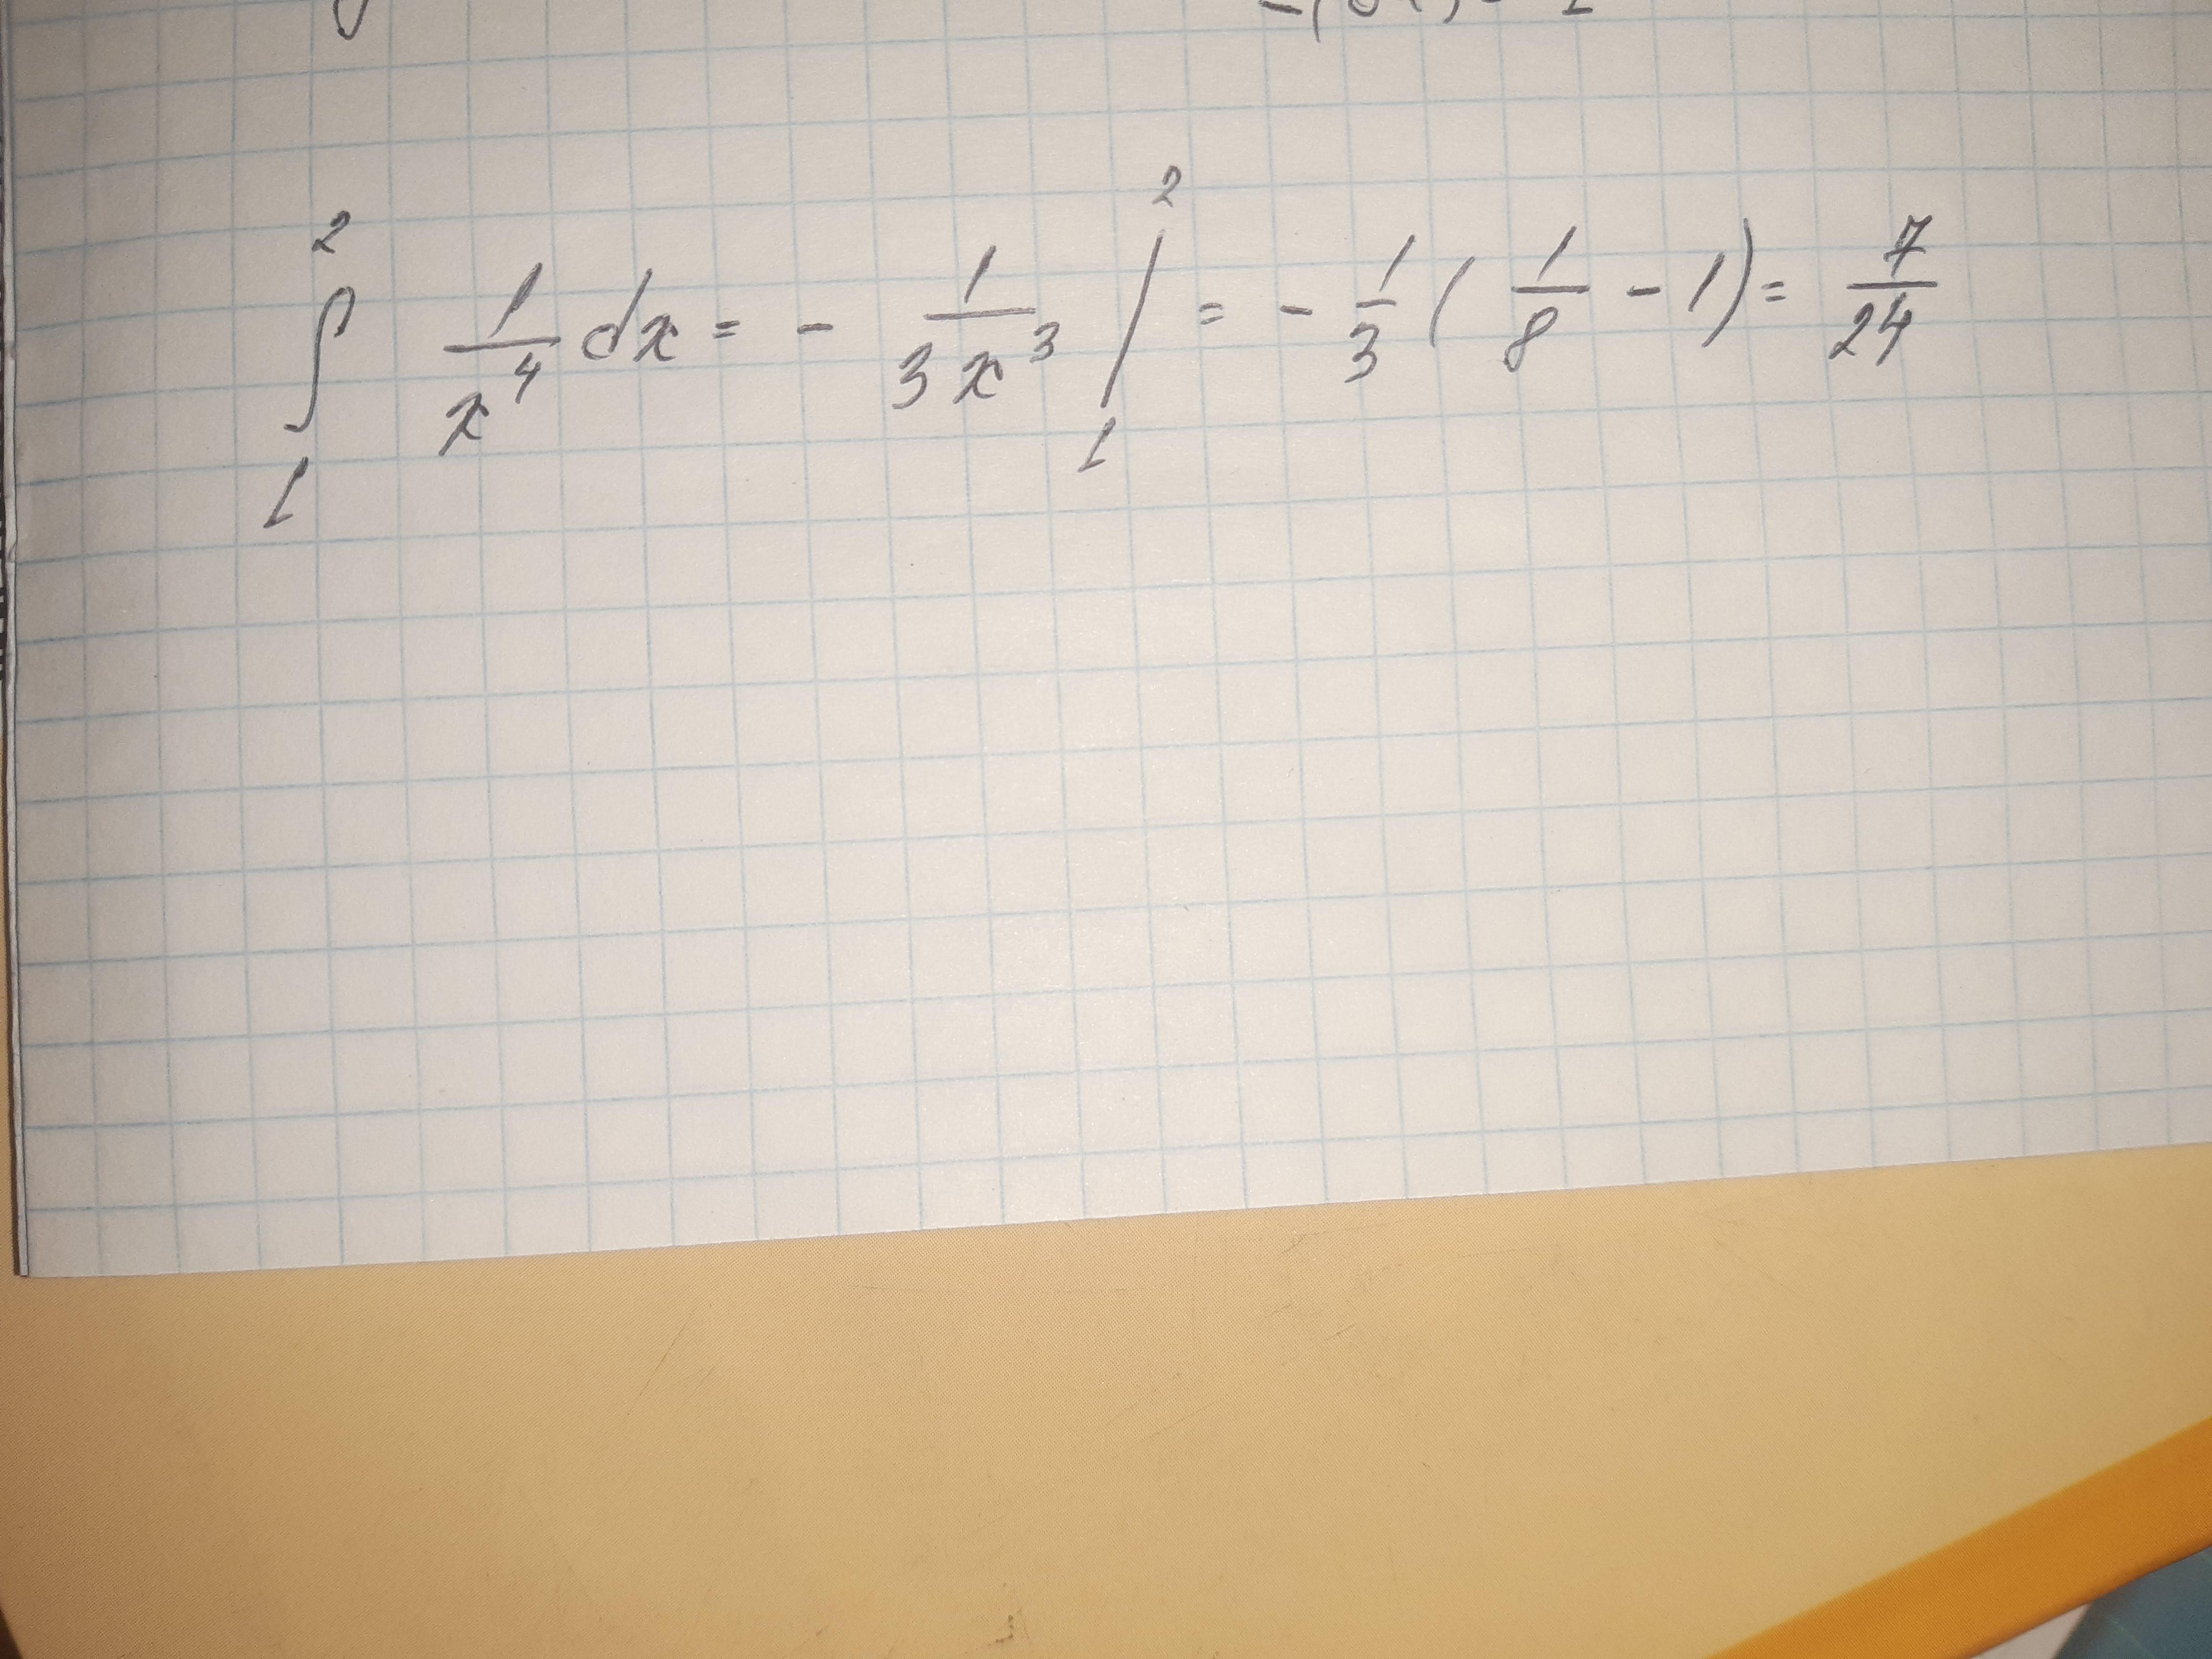 ∫₁² 1/x⁴ dx = - 1/3x³ |₁² = - 1/3 ( 1/8 - 1) = 7/24